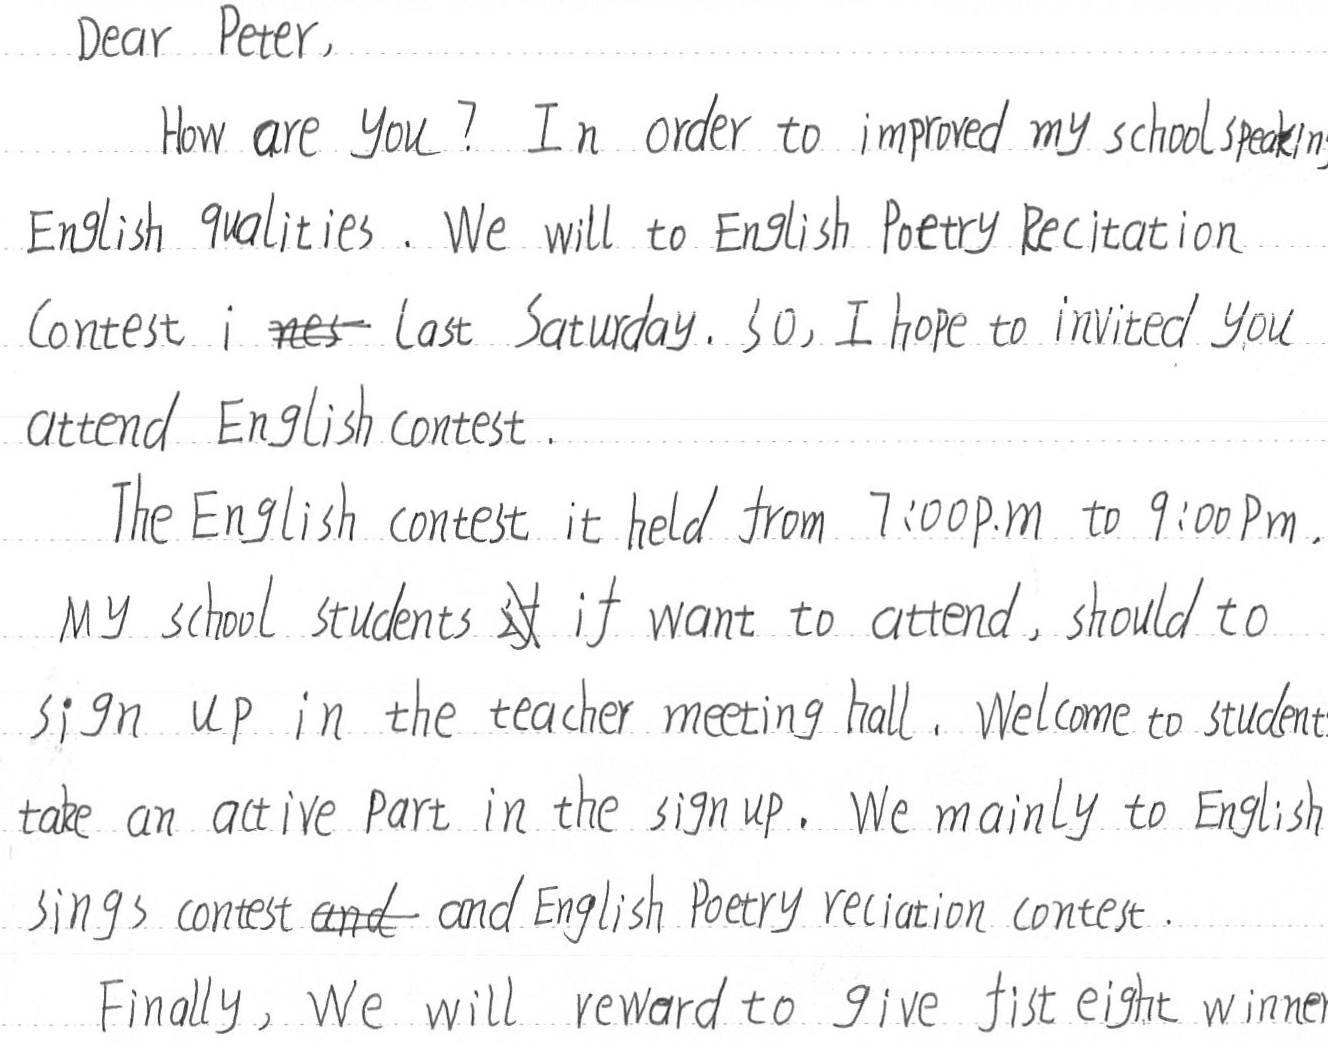 Dear Peter,
How are you? In order to improved my school speaking
English qualities. We will to English Poetry Recitation
Contest i last Saturday. So, I hope to invited you
attend English contest.
The English contest it held from 7:00p.m to 9:00Pm.
My school students if want to attend, should to
sign up in the teacher meeting hall. Welcome to students
take an active part in the sign up. We mainly to English
sings contest and English Poetry reciation contest.
Finally, We will reward to give fist eight winner